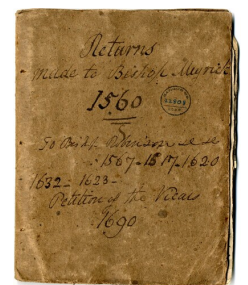 Returns
Made to Bishop Meyrick
1560
To Bishp
1567 - 1617 - 1620
1632 - 1623 -
Petition of the Vicars
1690